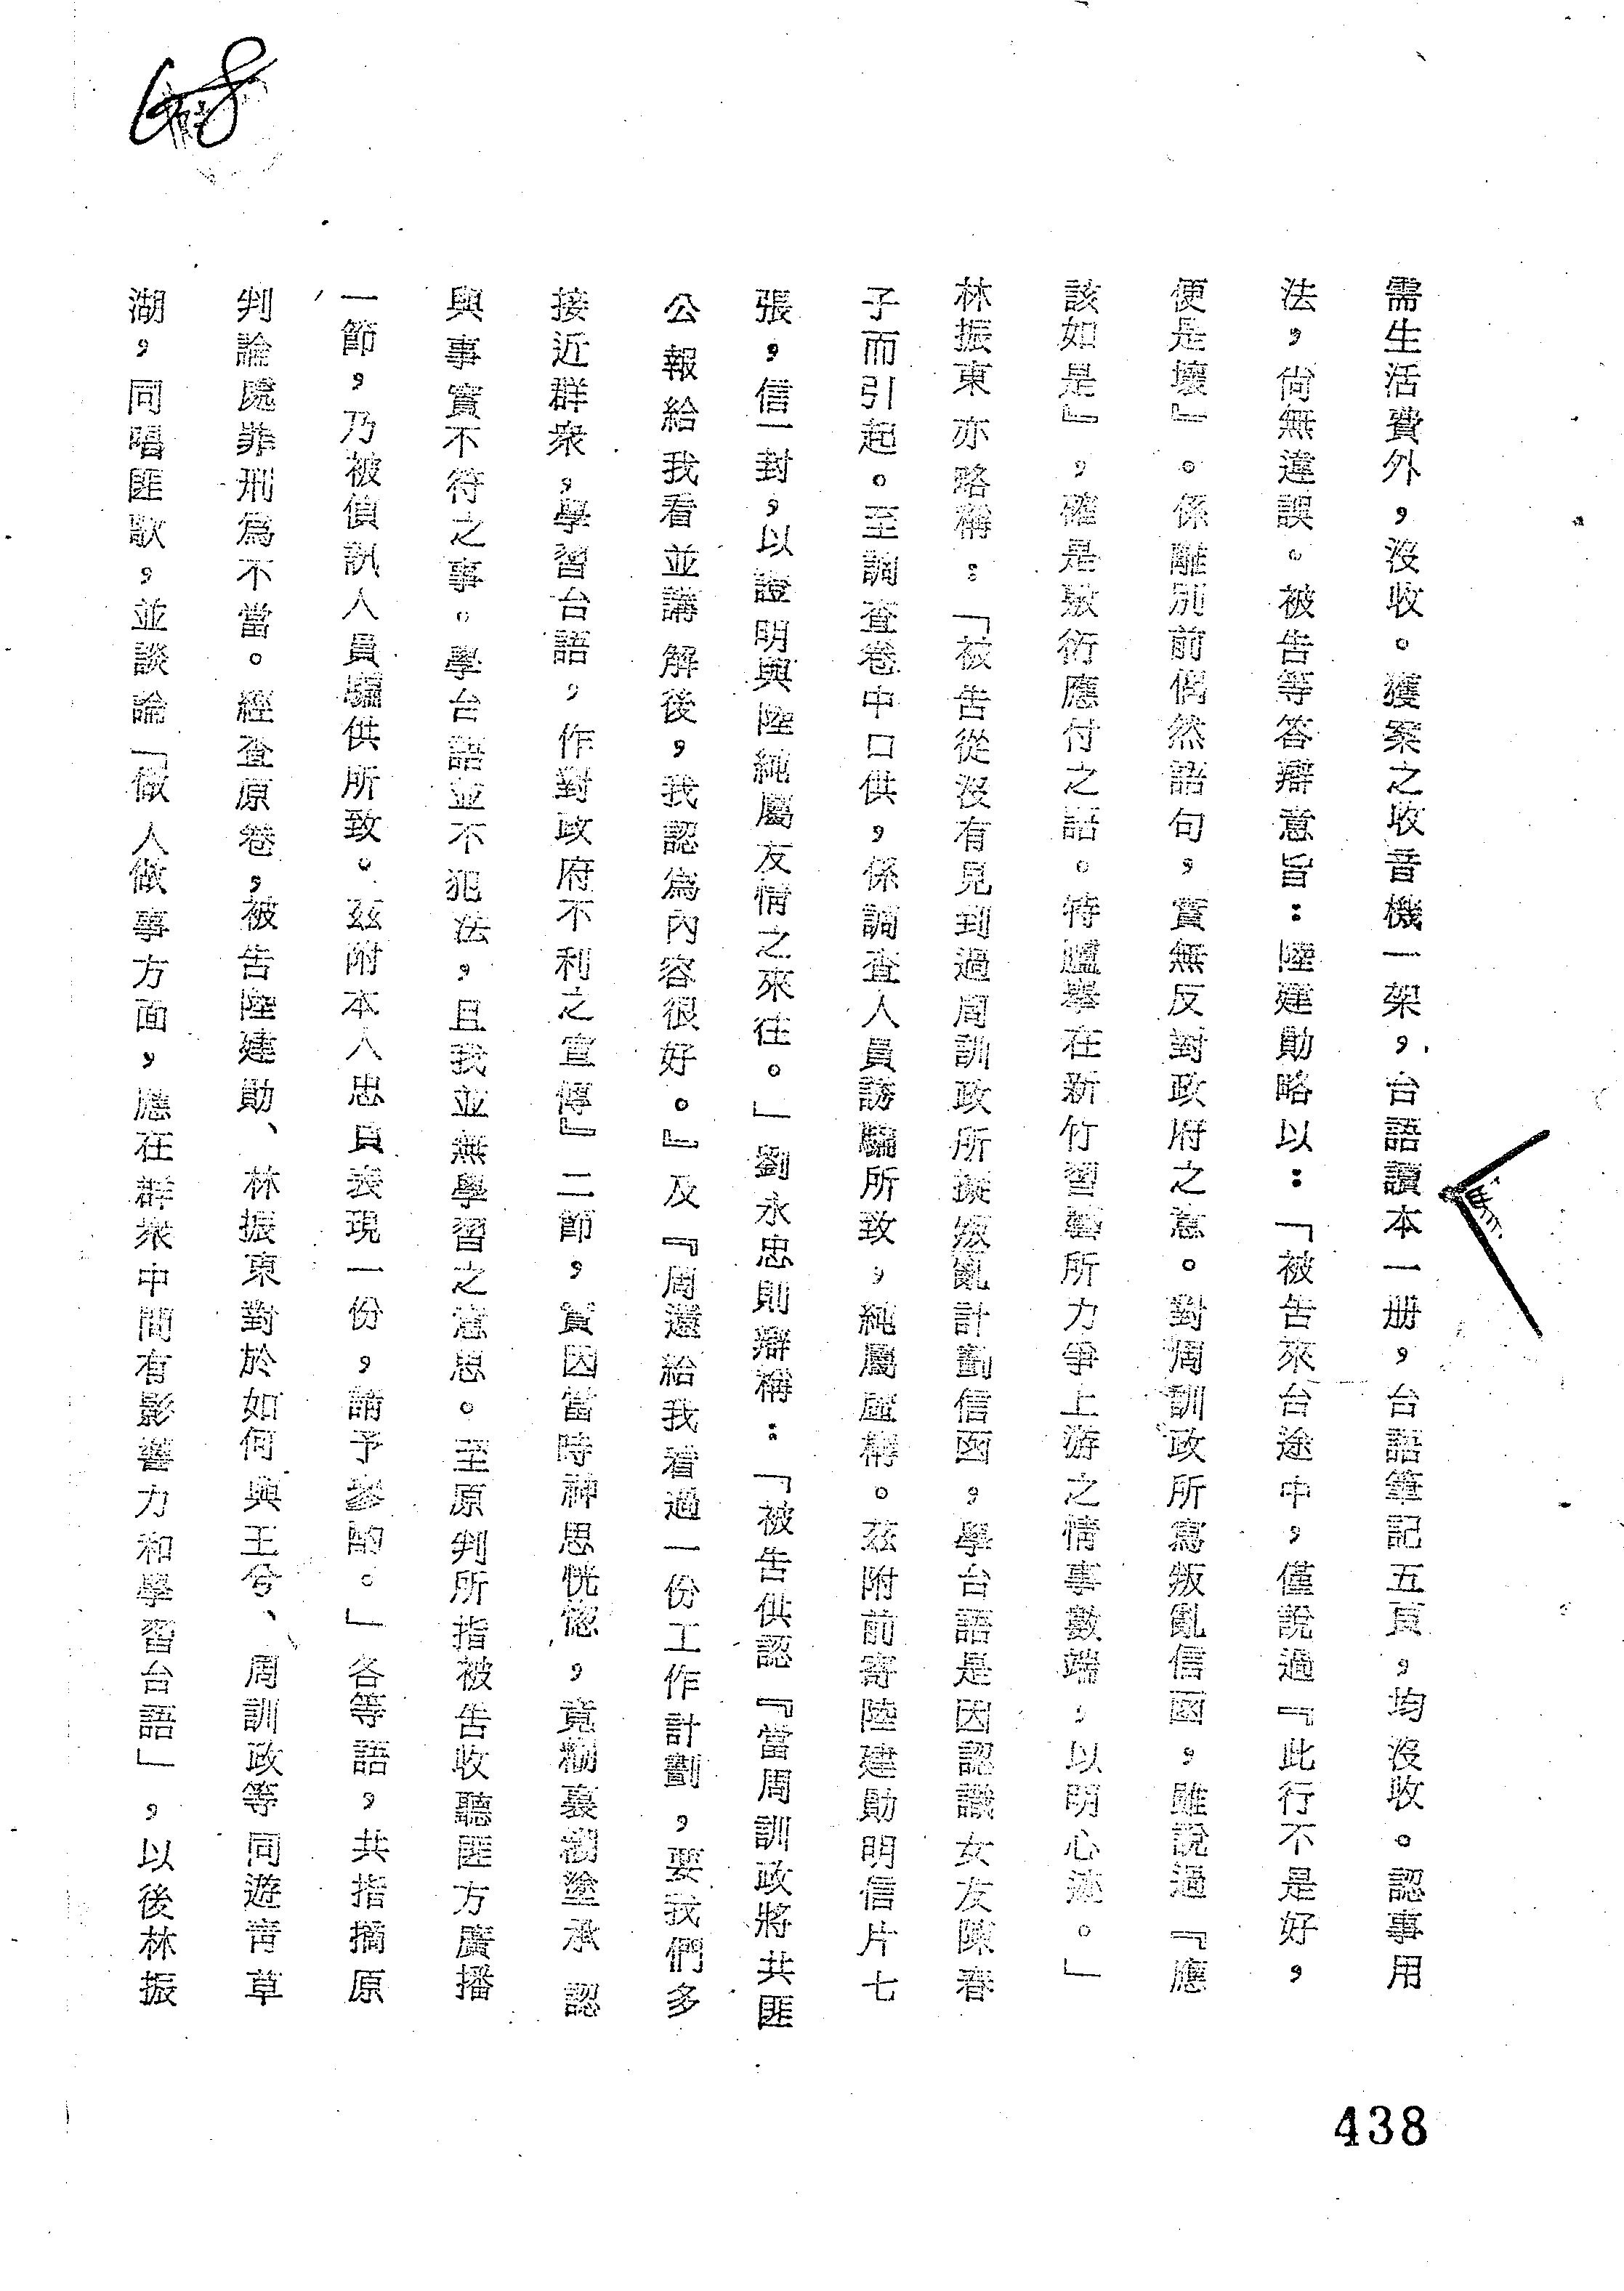 68
需生活費外，沒收。獲案之收音機一架，台語讀本一册，台語筆記五頁，均沒收。認事用
法，尙無違誤。被告等答辯意旨：陸建勛略以：「被告來台途中，僅說過『此行不是好，
便是壞』。係離別前偶然語句，實無反對政府之意。對周訓政所寫叛亂信函，雖說過『應
該如是』，確是敷衍應付之語。特臚舉在新竹習藝所力爭上游之情事數端，以明心迹。」
林振東亦略稱：「被告從沒有見到過周訓政所擬叛亂計劃信函，學台語是因認識女友陳春
子而引起。至調查卷中口供，係調查人員誘騙所致，純屬虛構。茲附前寄陸建勛明信片七
張，信一封，以證明與陸純屬友情之來往。」劉永忠則辯稱：「被告供認『當周訓政將共匪
公報給我看並講解後，我認爲內容很好。』及『周還給我看過一份工作計劃，要我們多
接近群衆，學習台語，作對政府不利之宣傳』二節，實因當時神思恍惚，竟糊裏糊塗承認
與事實不符之事。學台語並不犯法，且我並無學習之意思。至原判所指被告收聽匪方廣播
一節，乃被偵訊人員騙供所致。茲附本人忠貞表現一份，請予參酌。」各等語，共指摘原
判論處罪刑爲不當。經查原卷，被告陸建勛、林振東對於如何與王兮、周訓政等同遊靑草
湖，同唱匪歌，並談論「做人做事方面，應在群衆中間有影響力和學習台語」，以後林振
438